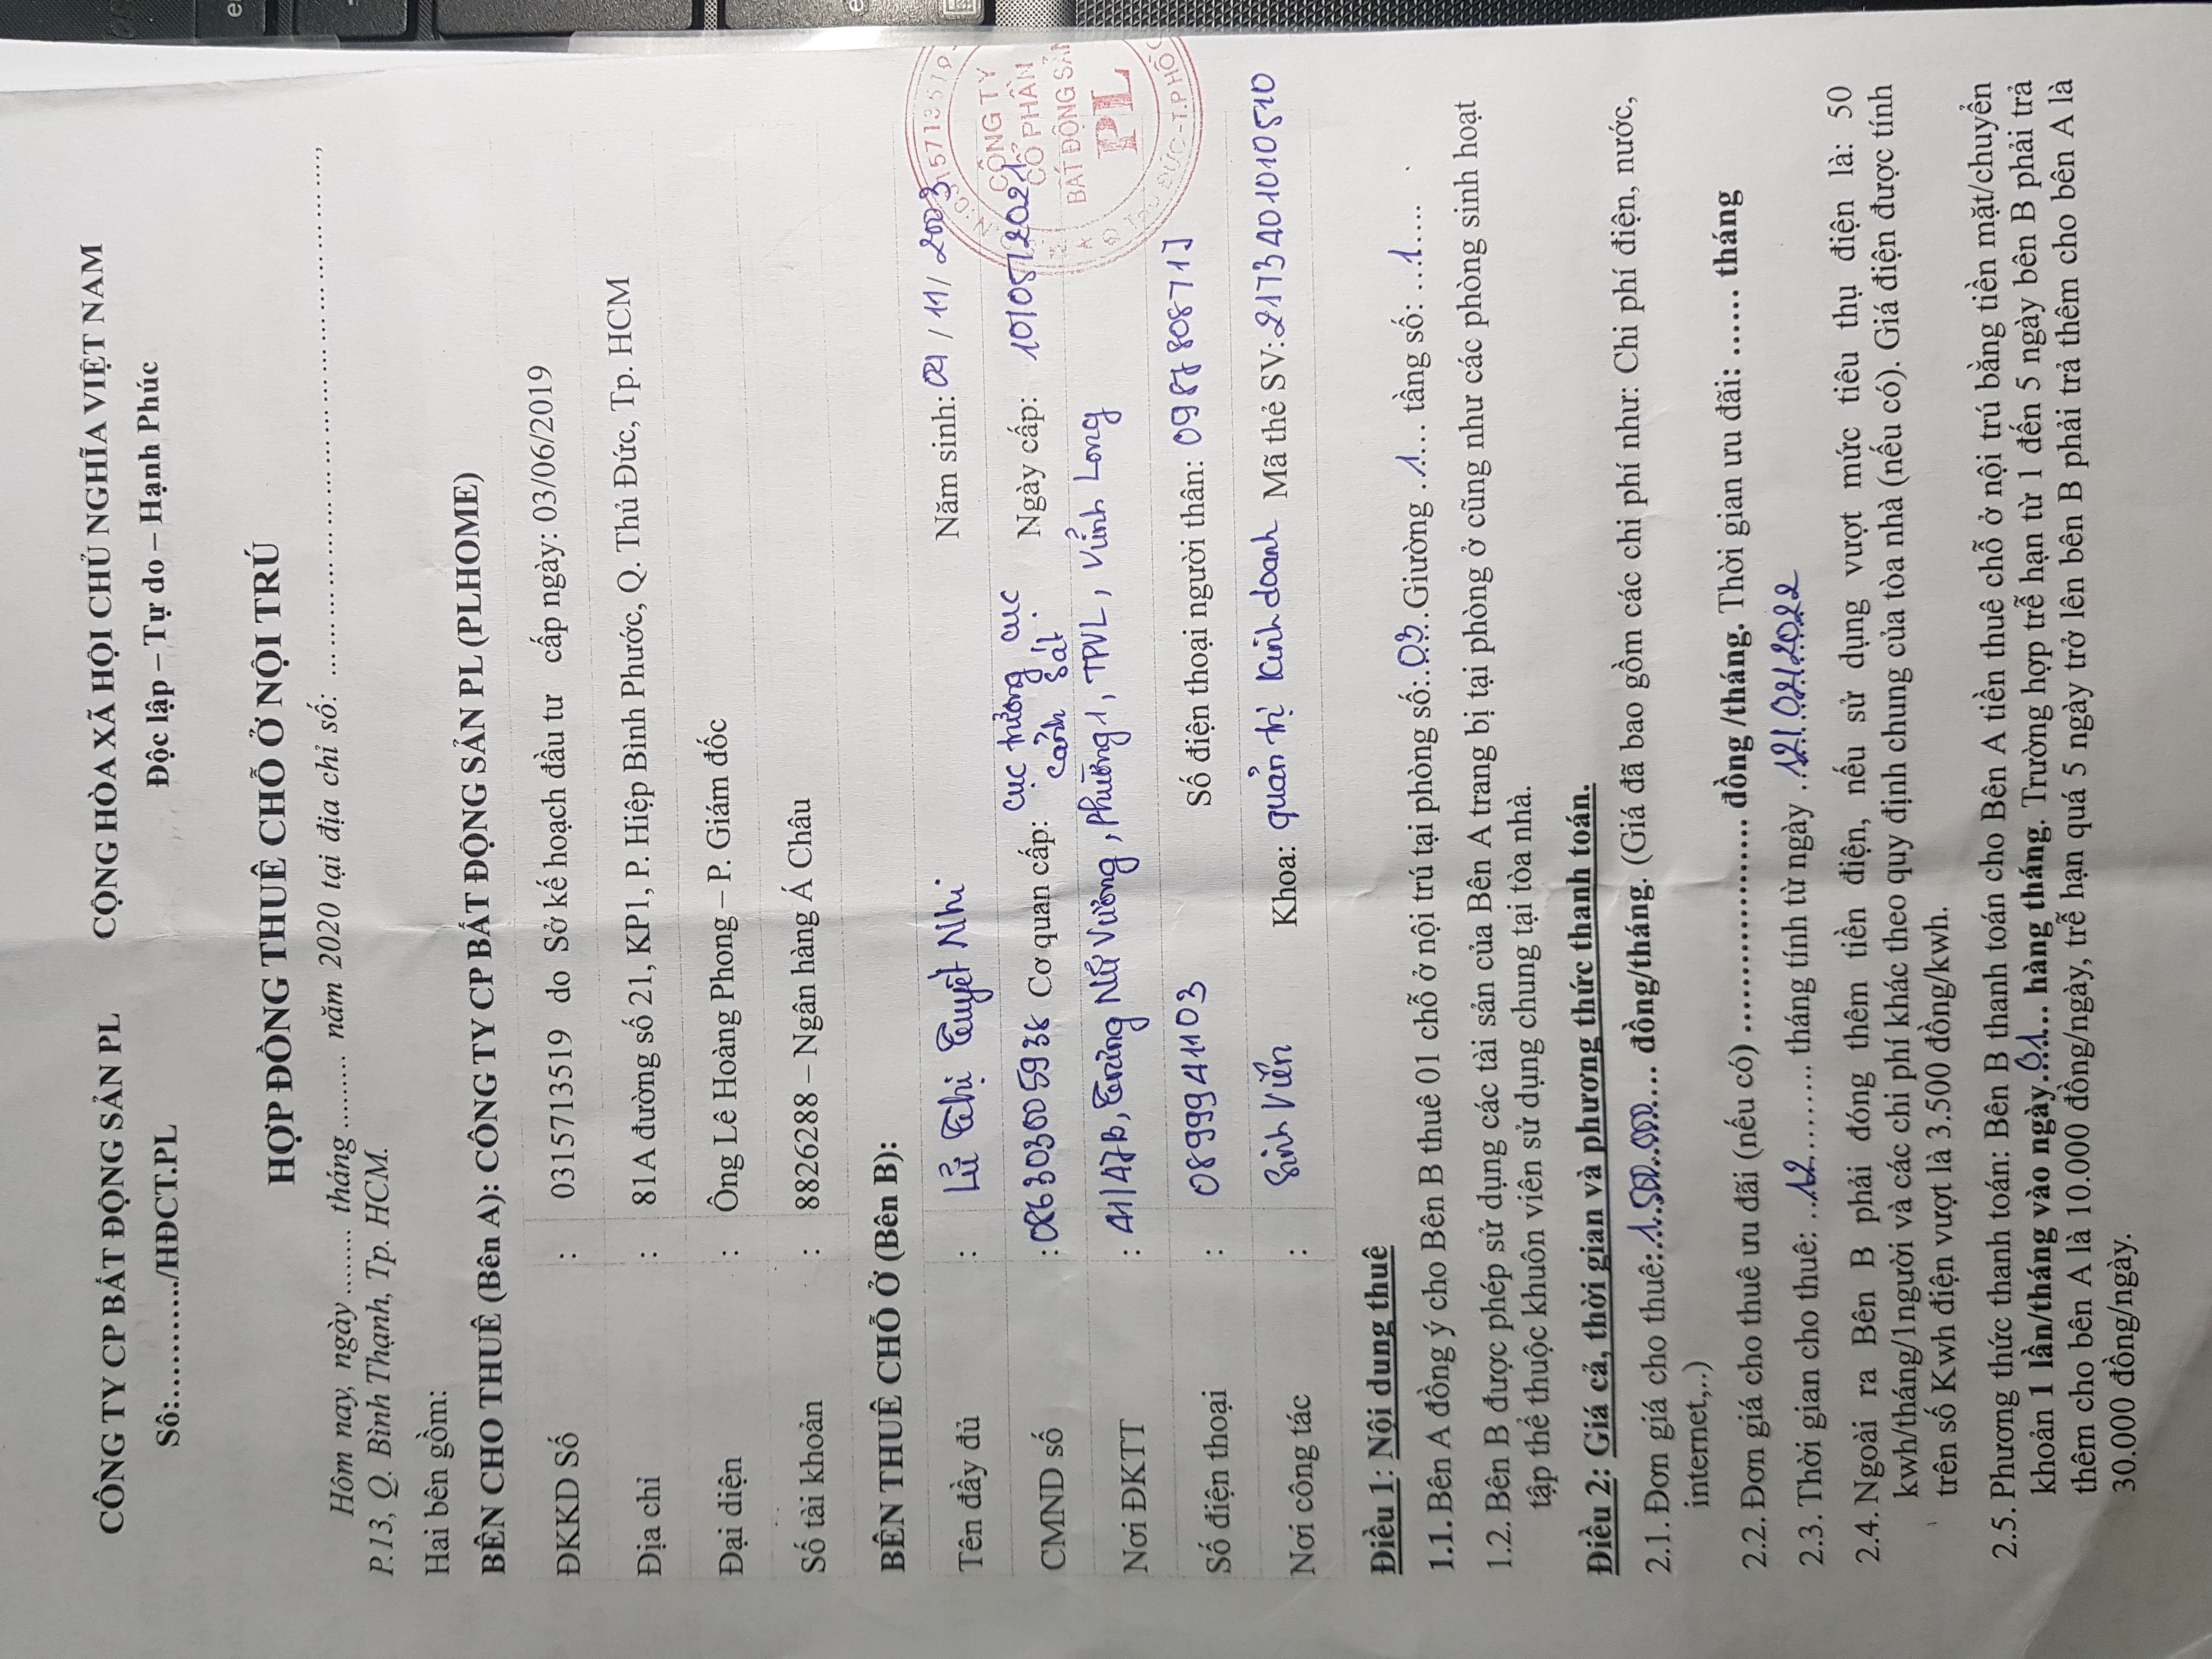 CÔNG TY CP BẤT ĐỘNG SẢN PL CỘNG HÒA XÃ HỘI CHỦ NGHĨA VIỆT NAM
Số:.........../HĐCT.PL Độc lập – Tự do – Hạnh Phúc
HỢP ĐỒNG THUÊ CHỖ Ở NỘI TRÚ
Hôm nay, ngày ........ tháng ......... năm 2020 tại địa chỉ số: ...............................................,
P.13, Q. Bình Thạnh, Tp. HCM.
Hai bên gồm:
BÊN CHO THUÊ (Bên A): CÔNG TY CP BẤT ĐỘNG SẢN PL (PLHOME)
ĐKKD Số : 0315713519 do Sở kế hoạch đầu tư cấp ngày: 03/06/2019
Địa chỉ : 81A đường số 21, KP1, P. Hiệp Bình Phước, Q. Thủ Đức, Tp. HCM
Đại diện : Ông Lê Hoàng Phong – P. Giám đốc
Số tài khoản : 8826288 – Ngân hàng Á Châu
BÊN THUÊ CHỖ Ở (Bên B):
Tên đầy đủ : Lữ Thị Tuyết Nhi Năm sinh: 11/2003
CMND số : Cơ quan cấp: cục trưởng cục cảnh sát. Ngày cấp: 10/05/2021
Nơi ĐKTT : 41/47B, Trưng Nữ Vương, Phường 1, TPVL, Vĩnh Long
Số điện thoại : 0899941103 Số điện thoại người thân:
Nơi công tác : Sinh Viên Khoa: quản trị kinh doanh Mã thẻ SV:
CÔNG TY
CỔ PHẦN
BẤT ĐỘNG SẢN
PL
Điều 1: Nội dung thuê
1.1. Bên A đồng ý cho Bên B thuê 01 chỗ ở nội trú tại phòng số:..03....Giường ..1.... tầng số: ...1....
1.2. Bên B được phép sử dụng các tài sản của Bên A trang bị tại phòng ở cũng như các phòng sinh hoạt
tập thể thuộc khuôn viên sử dụng chung tại tòa nhà.
Điều 2: Giá cả, thời gian và phương thức thanh toán.
2.1. Đơn giá cho thuê:..1.500.000.... đồng/tháng. (Giá đã bao gồm các chi phí như: Chi phí điện, nước,
internet,..)
2.2. Đơn giá cho thuê ưu đãi (nếu có) ........................ đồng /tháng. Thời gian ưu đãi: ..... tháng
2.3. Thời gian cho thuê: ...12........ tháng tính từ ngày
2.4. Ngoài ra Bên B phải đóng thêm tiền điện, nếu sử dụng vượt mức tiêu thụ điện là: 50
kwh/tháng/1người và các chi phí khác theo quy định chung của tòa nhà (nếu có). Giá điện được tính
trên số Kwh điện vượt là 3.500 đồng/kwh.
2.5. Phương thức thanh toán: Bên B thanh toán cho Bên A tiền thuê chỗ ở nội trú bằng tiền mặt/chuyển
khoản 1 lần/tháng vào ngày..01... hàng tháng. Trường hợp trễ hạn từ 1 đến 5 ngày bên B phải trả
thêm cho bên A là 10.000 đồng/ngày, trễ hạn quá 5 ngày trở lên bên B phải trả thêm cho bên A là
30.000 đồng/ngày.